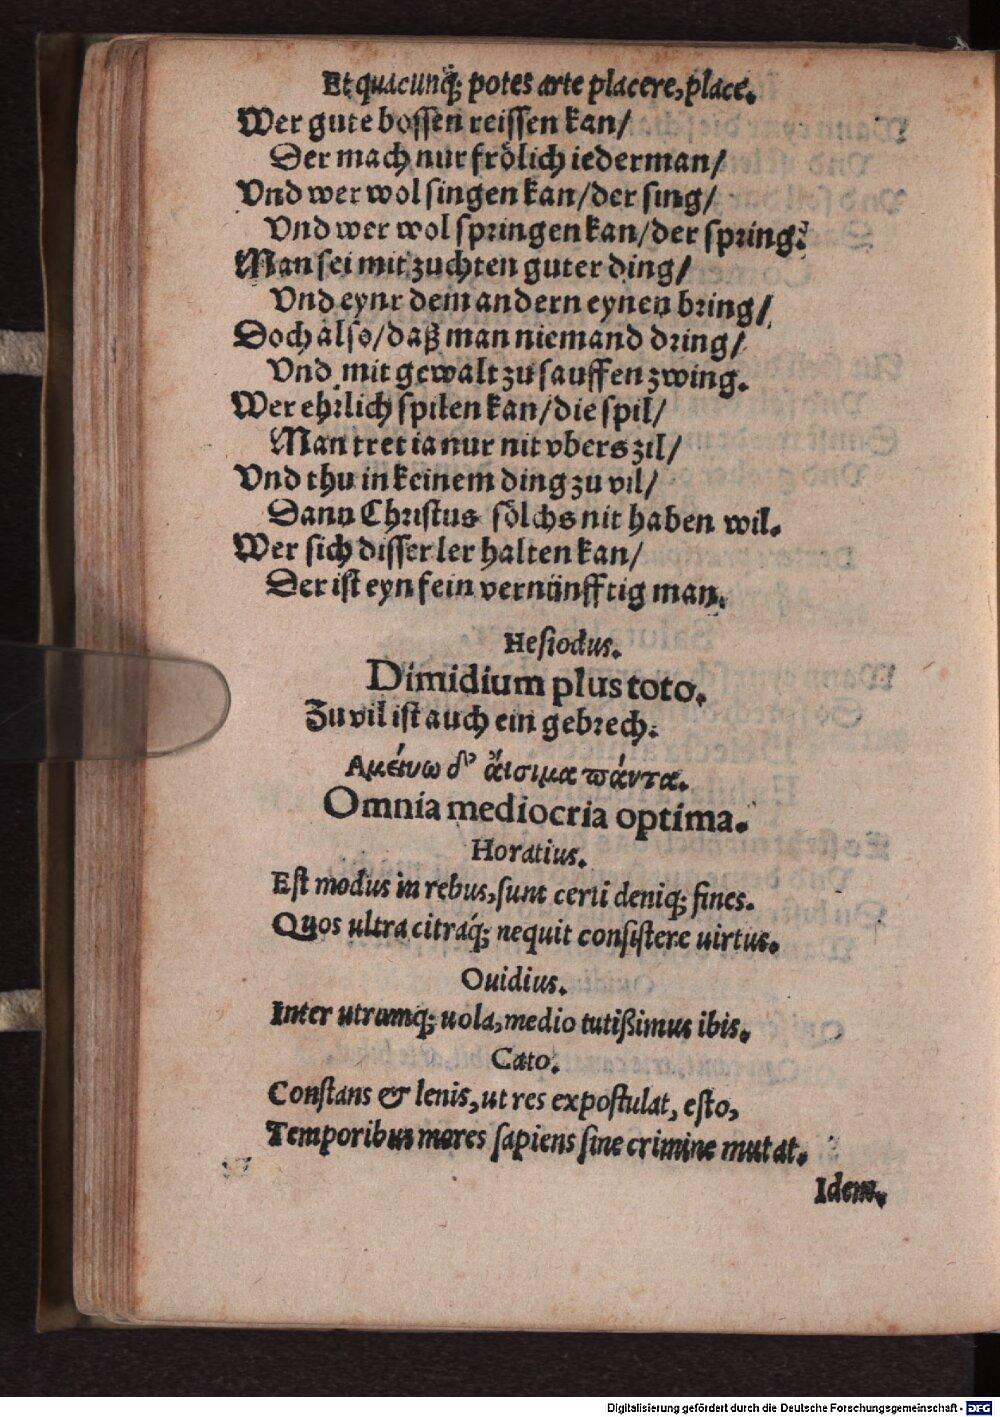 Et quacunq; potes arte placere, place.
Wer gute bossen reissen kan/
Der mach nur frölich iederman/
Vnd wer wol singen kan/der sing/
Vnd wer wol springen kan/der spring.
Man sei mit zuchten guter ding/
Vnd eynr dem andern eynen bring/
Doch also/daß man niemand dring/
Vnd mit gewalt zu sauffen zwing.
Wer ehrlich spilen kan/die spil/
Man tret ia nur nit vbers zil/
Vnd thu in keinem ding zu vil/
Dann Christus sölchs nit haben wil.
Wer sich disser ler halten kan/
Der ist eyn fein vernünfftig man.
Hesiodus.
Dimidium plus toto.
Zu vil ist auch ein gebrech.
Αμείνω δ' ἄισιμα πάντα.
Omnia mediocria optima.
Horatius.
Est modus in rebus, sunt certi deniq; fines.
Quos ultra citráq; nequit consistere uirtus.
Ouidius.
Inter utrumq; uola, medio tutißimus ibis.
Cato.
Constans & lenis, ut res expostulat, esto,
Temporibus mores sapiens sine crimine mutat.
Idem.
Digitalisierung gefördert durch die Deutsche Forschungsgemeinschaft - DFG